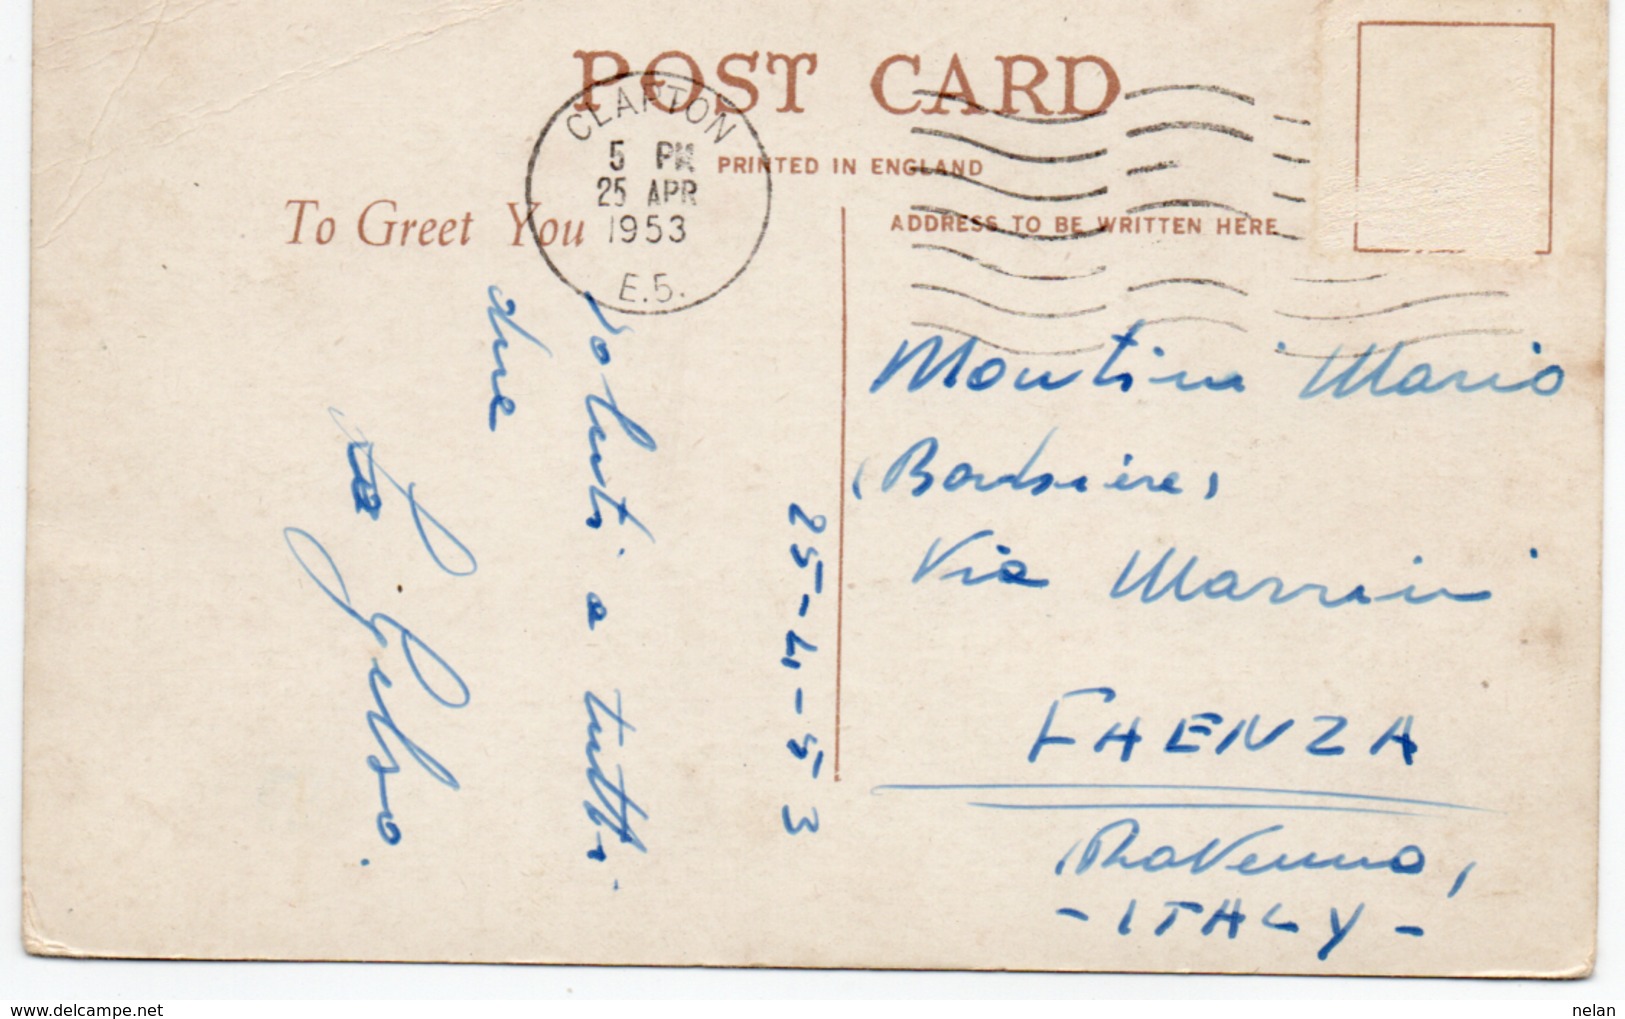 POST CARD
CLAPTON
5 PM
25 APR
1953
E.5.
PRINTED IN ENGLAND
To Greet You
ADDRESS TO BE WRITTEN HERE
25-4-53
saluti a tutti.
Gelso.
Montini Mario
(Barbiere)
Via
FAENZA
(Ravenna)
- ITALY -
www.delcampe.net
nelan